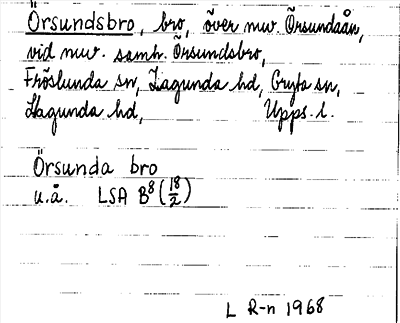 Örsundsbro, bro, över nuv. Örsundaån,
vid nuv. samh. Örsundsbro,
Fröslunda sn, Lagunda hd, Gryta sn,
Hagunda hd, Upps. l.
Örsunda bro
u.å. LSA B⁸ (18/2)
L R-n 1968